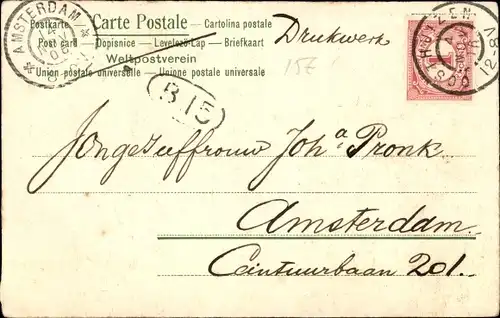 AMSTERDAM
Postkarte Carte Postale Cartolina postale
Post card — Dopisnice — Levelező-Lap — Briefkaart
Weltpostverein
Union postale universelle — Unione postale universale
Drukwerk
15E
HUIZEN
B 15
Jongejuffrouw Joha Pronk
Amsterdam.
Ceintuurbaan 201.